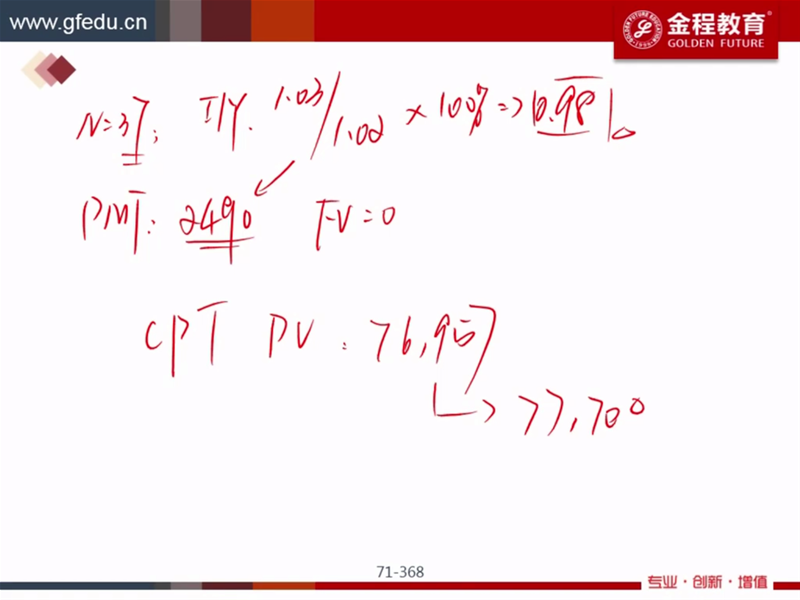 www.gfedu.cn
金程教育®
GOLDEN FUTURE
N=37; I/Y. 1.03/1.02 × 100% => 0.98%
PMT: 2490 FV=0
CPT PV: 76,957
77,700
71-368
专业·创新·增值